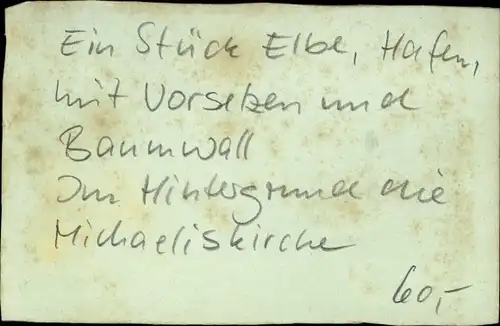 Ein Stück Elbe, Hafen,
mit Vorsetzen und
Baumwall
Im Hintergrund die
Michaeliskirche
60,-